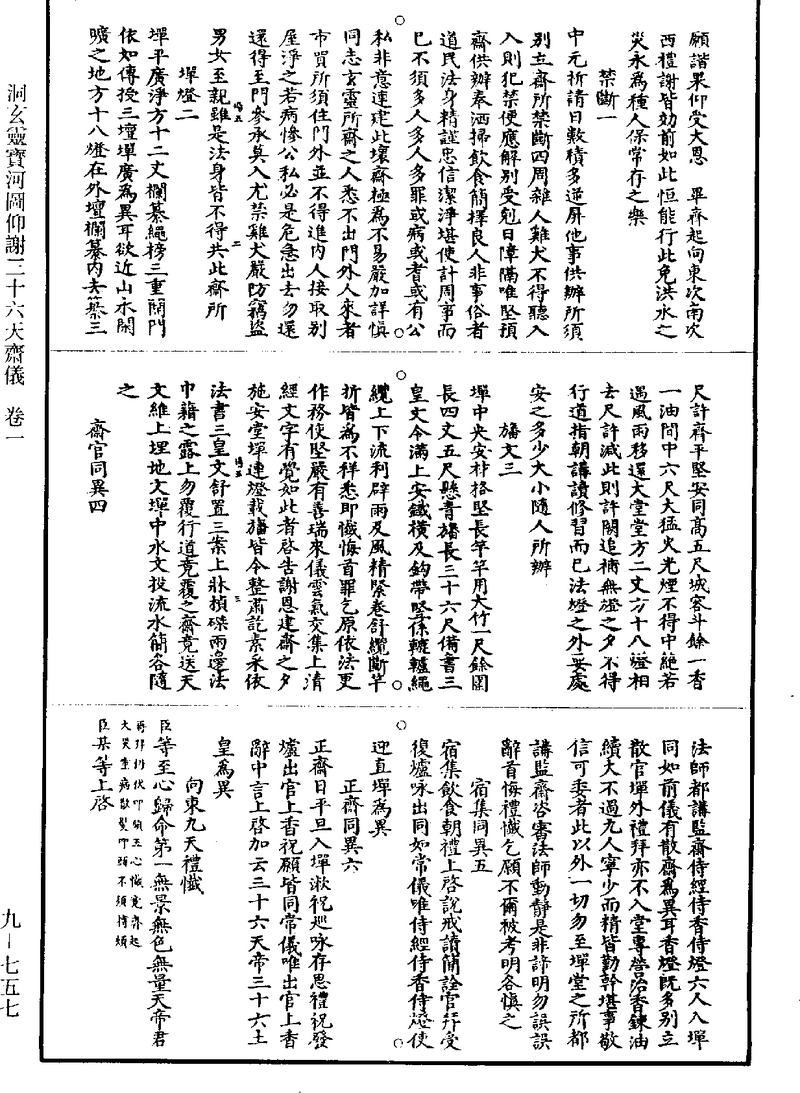 願諧果仰受大恩　畢齊起向東次南次
西禮謝皆効前如此恒能行此免洪水之
災永為種人保常存之樂
禁斷一
中元祈請日數積多逆屏他事供辦所須
別立齋所禁斷四周雜人雞犬不得聽入
入則犯禁便應解別受剋日障隔唯堅預
齋供辦奉洒掃飲食簡擇良人非事俗者
道民法身精謹忠信潔淨堪使計周事而
已不須多人多人多罪或病或者或有公
私非意連建此壞齋極為不易嚴加詳慎
同志玄靈所齋之人悉不出門外人來者
市買所須住門外並不得進內人接取別
屋淨之若病慘公私必是危急出去勿還
還得至門參承莫入尤禁雞犬嚴防竊盜
男女至親雖是法身皆不得共此齋所
墠燈二
墠平廣淨方十二丈欄纂繩榜三重開門
依如傳授三壇墠廣為異耳欲近山水閑
曠之地方十八燈在外壇欄纂內去纂三
尺許齊平堅安同高五尺城容斗餘一香
一油間中六尺大猛火光煙不得中絕若
遇風雨移還大堂堂方二丈方十八燈相
去尺許減此則許闕追補無燈之夕不得
行道指朝講讀修習而已法燈之外要處
安之多少大小隨人所辦
旛文三
墠中央安材格堅長竿竿用大竹一尺餘圍
長四丈五尺懸青旛長三十六尺備書三
皇文令滿上安鐵橫及鈎帶堅係轆轤繩
纜上下流利辟雨及風精緊卷舒纜斷竿
折皆為不祥悉即懺悔首罪乞原依法更
作務使堅嚴有善瑞來儀雲氣交集上清
經文字有覺如此者啓告謝恩建齋之夕
施安堂墠連燈載旛皆令整肅訖素末依
法書三皇文舒置三案上牀楨磔兩邊法
巾籍之露上勿覆行道竟覆之齋竟送天
文維上埋地文墠中水文投流水簡各隨
之
齋官同異四
法師都講監齋侍經侍香侍燈六人入墠
同如前儀有散齋為異耳香燈既多別立
散官墠外禮拜亦不入堂專營治香鍊油
續大不過九人寧少而精皆勤幹堪事敬
信可委者此以外一切勿至墠堂之所都
講監齋咨審法師動靜是非諦明勿誤誤
辭首悔禮懺乞願不爾被考明各慎之
宿集同異五
宿集飲食朝禮上啓說戒讀簡詮官拜受
復爐咏出同如常儀唯侍經侍香侍燈使
迎直墠為異
正齊同異六
正齋日平旦入墠漱祝巡咏存思禮祝發
爐出官上香祝願皆同常儀唯出官上香
辭中言上啓加云三十六天帝三十六土
皇為異
向東九天禮懺
臣等至心歸命第一無景無色無量天帝君
臣某等上啓
洞玄靈寶河圖仰謝三十六天齋儀　卷一
九—七五七